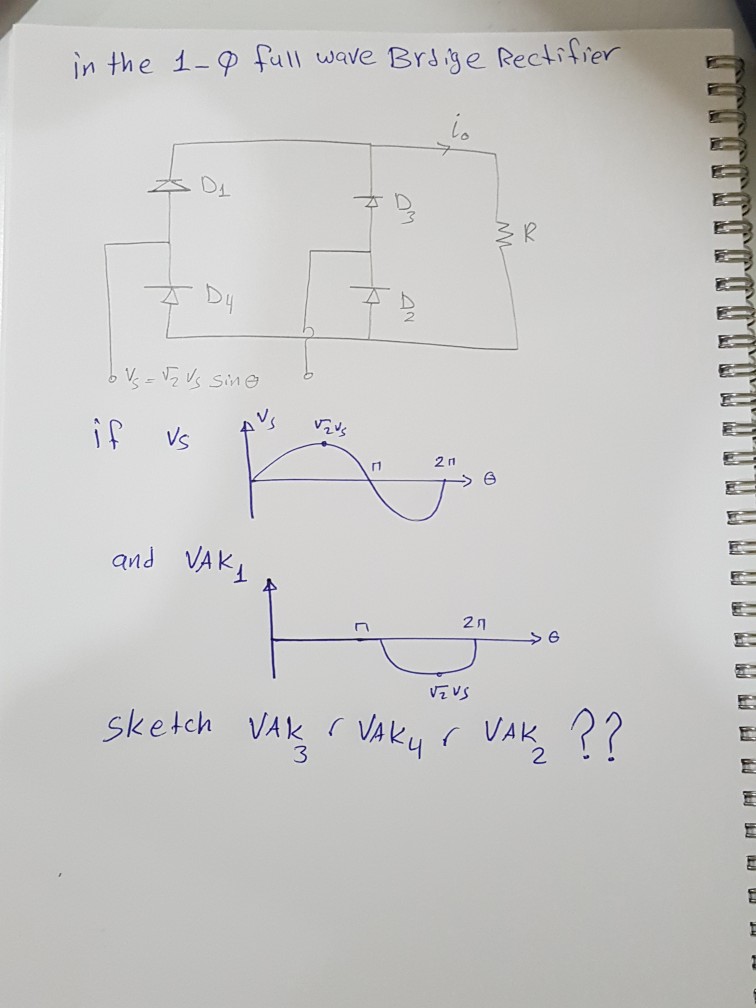 in the 1-φ full wave Brdige Rectifier
i₀
D₁
D₃
R
D₄
D₂
Vs = √2 Vs sinθ
if vs
Vs
√2 Vs
π
2π
θ
and VAK₁
π
2π
θ
√2 Vs
sketch VAK₃ , VAK₄ , VAK₂ ??